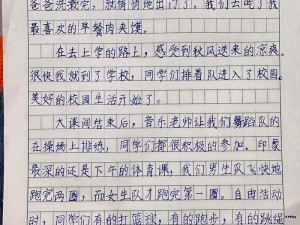 爸爸洗漱完，就悄悄地出门了。我们去吃了我
最喜欢的早餐肉夹馍。
在去上学的路上，感受到秋风送来的凉爽。
很快我就到了学校，同学们排着队进入了校园。
美好的校园生活开始了。
大课间结束后，音乐老师让我们舞蹈队的
在操场上排练，同学们都很积极的参加。印象
最深的还是下午的体育课，我们男生队飞快地
跑完两圈，而女生队才跑完第一圈。自由活动
时，同学们有的打篮球，有的跑步，有的跳绳……